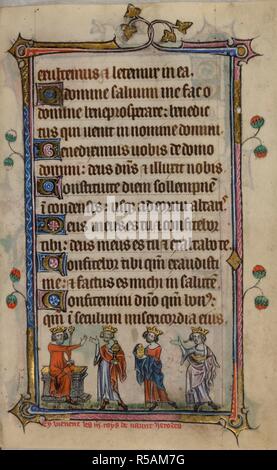 exultemus & letemur in ea.
O domine saluum me fac o
domine bene prosperare: benedic
tus qui uenit in nomine domini.
Benediximus uobis de domo
domini: deus dns & illuxit nobis.
Constituite diem sollempne
in condensis: usq; ad cornu altaris
Deus meus es tu & confitebor
tibi: deus meus es tu & exaltabo te.
Confitebor tibi qm exaudisti
me: & factus es michi in salute.
Confitemini dno qm bon9:
qm in seculum misericordia eius.
Cy vienent les iii. roys de uaunt herodes
alamy
www.alamy.com - R5AM7G